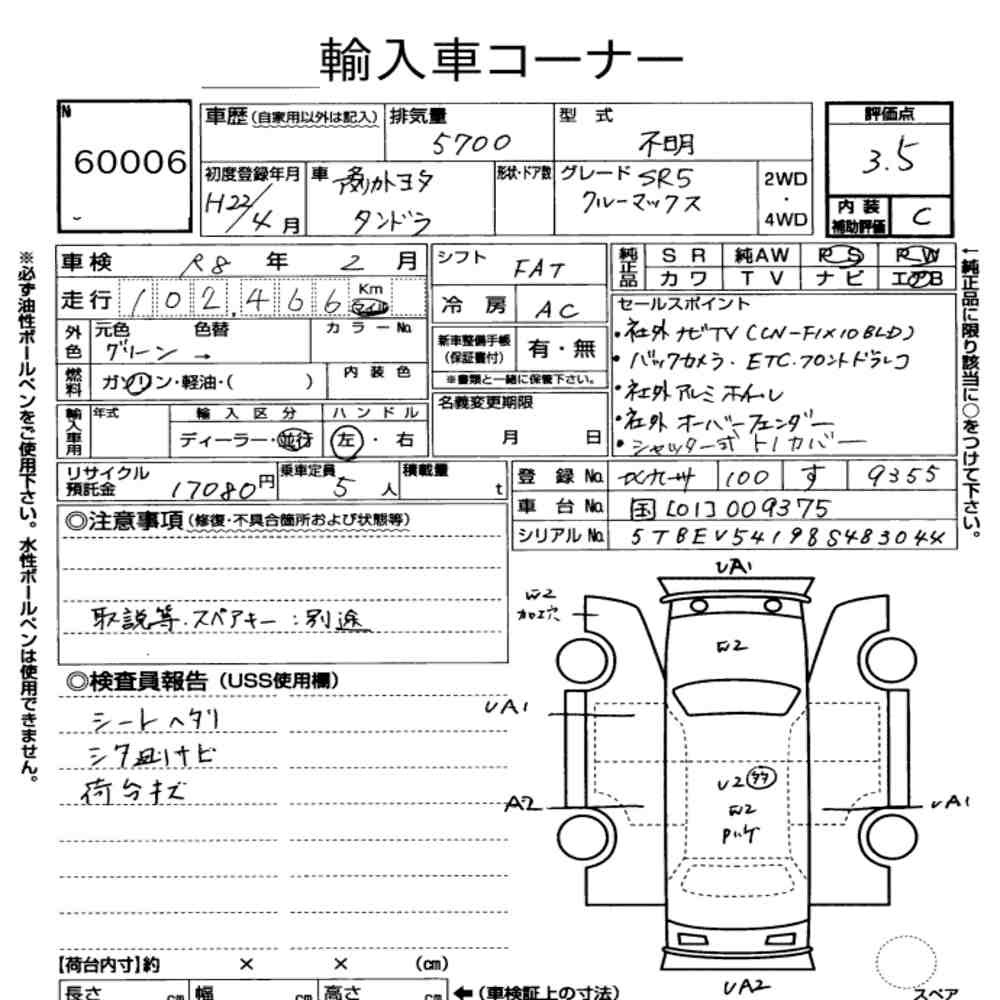 輸入車コーナー
№ 60006
車歴 (自家用以外は記入) 排気量 5700 型式 不明
初度登録年月 H22/4月 車名 アメリカトヨタ タンドラ 形状・ドア数 グレード SR5 クルーマックス 2WD・4WD
評価点 3.5
内装補助評価 C
※必ず油性ボールペンをご使用下さい。水性ボールペンは使用できません。
←純正品に限り該当に○をつけて下さい。
車検 R8年 2月
走行 102,466 Km マイル
外色 元色 グリーン → 色替 カラーNo.
燃料 ガソリン・軽油・( ) 内装色
輸入車用 年式 輸入区分 ディーラー・並行 ハンドル 左・右
リサイクル預託金 17080円 乗車定員 5人 積載量 t
シフト FAT
冷房 AC
新車整備手帳(保証書付) 有・無
※書類と一緒に保管下さい。
名義変更期限 月 日
純正品 SR 純AW PS PW
カワ TV ナビ エアB
セールスポイント
・社外ナビTV(CN-F1X10BLD)
・バックカメラ・ETC・フロントドラレコ
・社外アルミホイール
・社外オーバーフェンダー
・シャッター式トノカバー
登録No. 北九州 100 す 9355
車台No. 国[01]009375
シリアルNo. 5TBEV54198S483044
◎注意事項 (修復・不具合箇所および状態等)
取説等・スペアキー:別途
◎検査員報告 (USS使用欄)
シートヘタリ
シタ廻サビ
荷台キズ
UA1
W2
加工穴
W2
UA1
U2
W2
A2
UA1
UA2
【荷台内寸】約 × × (cm)
長さ cm 幅 cm 高さ cm ←(車検証上の寸法)
スペア